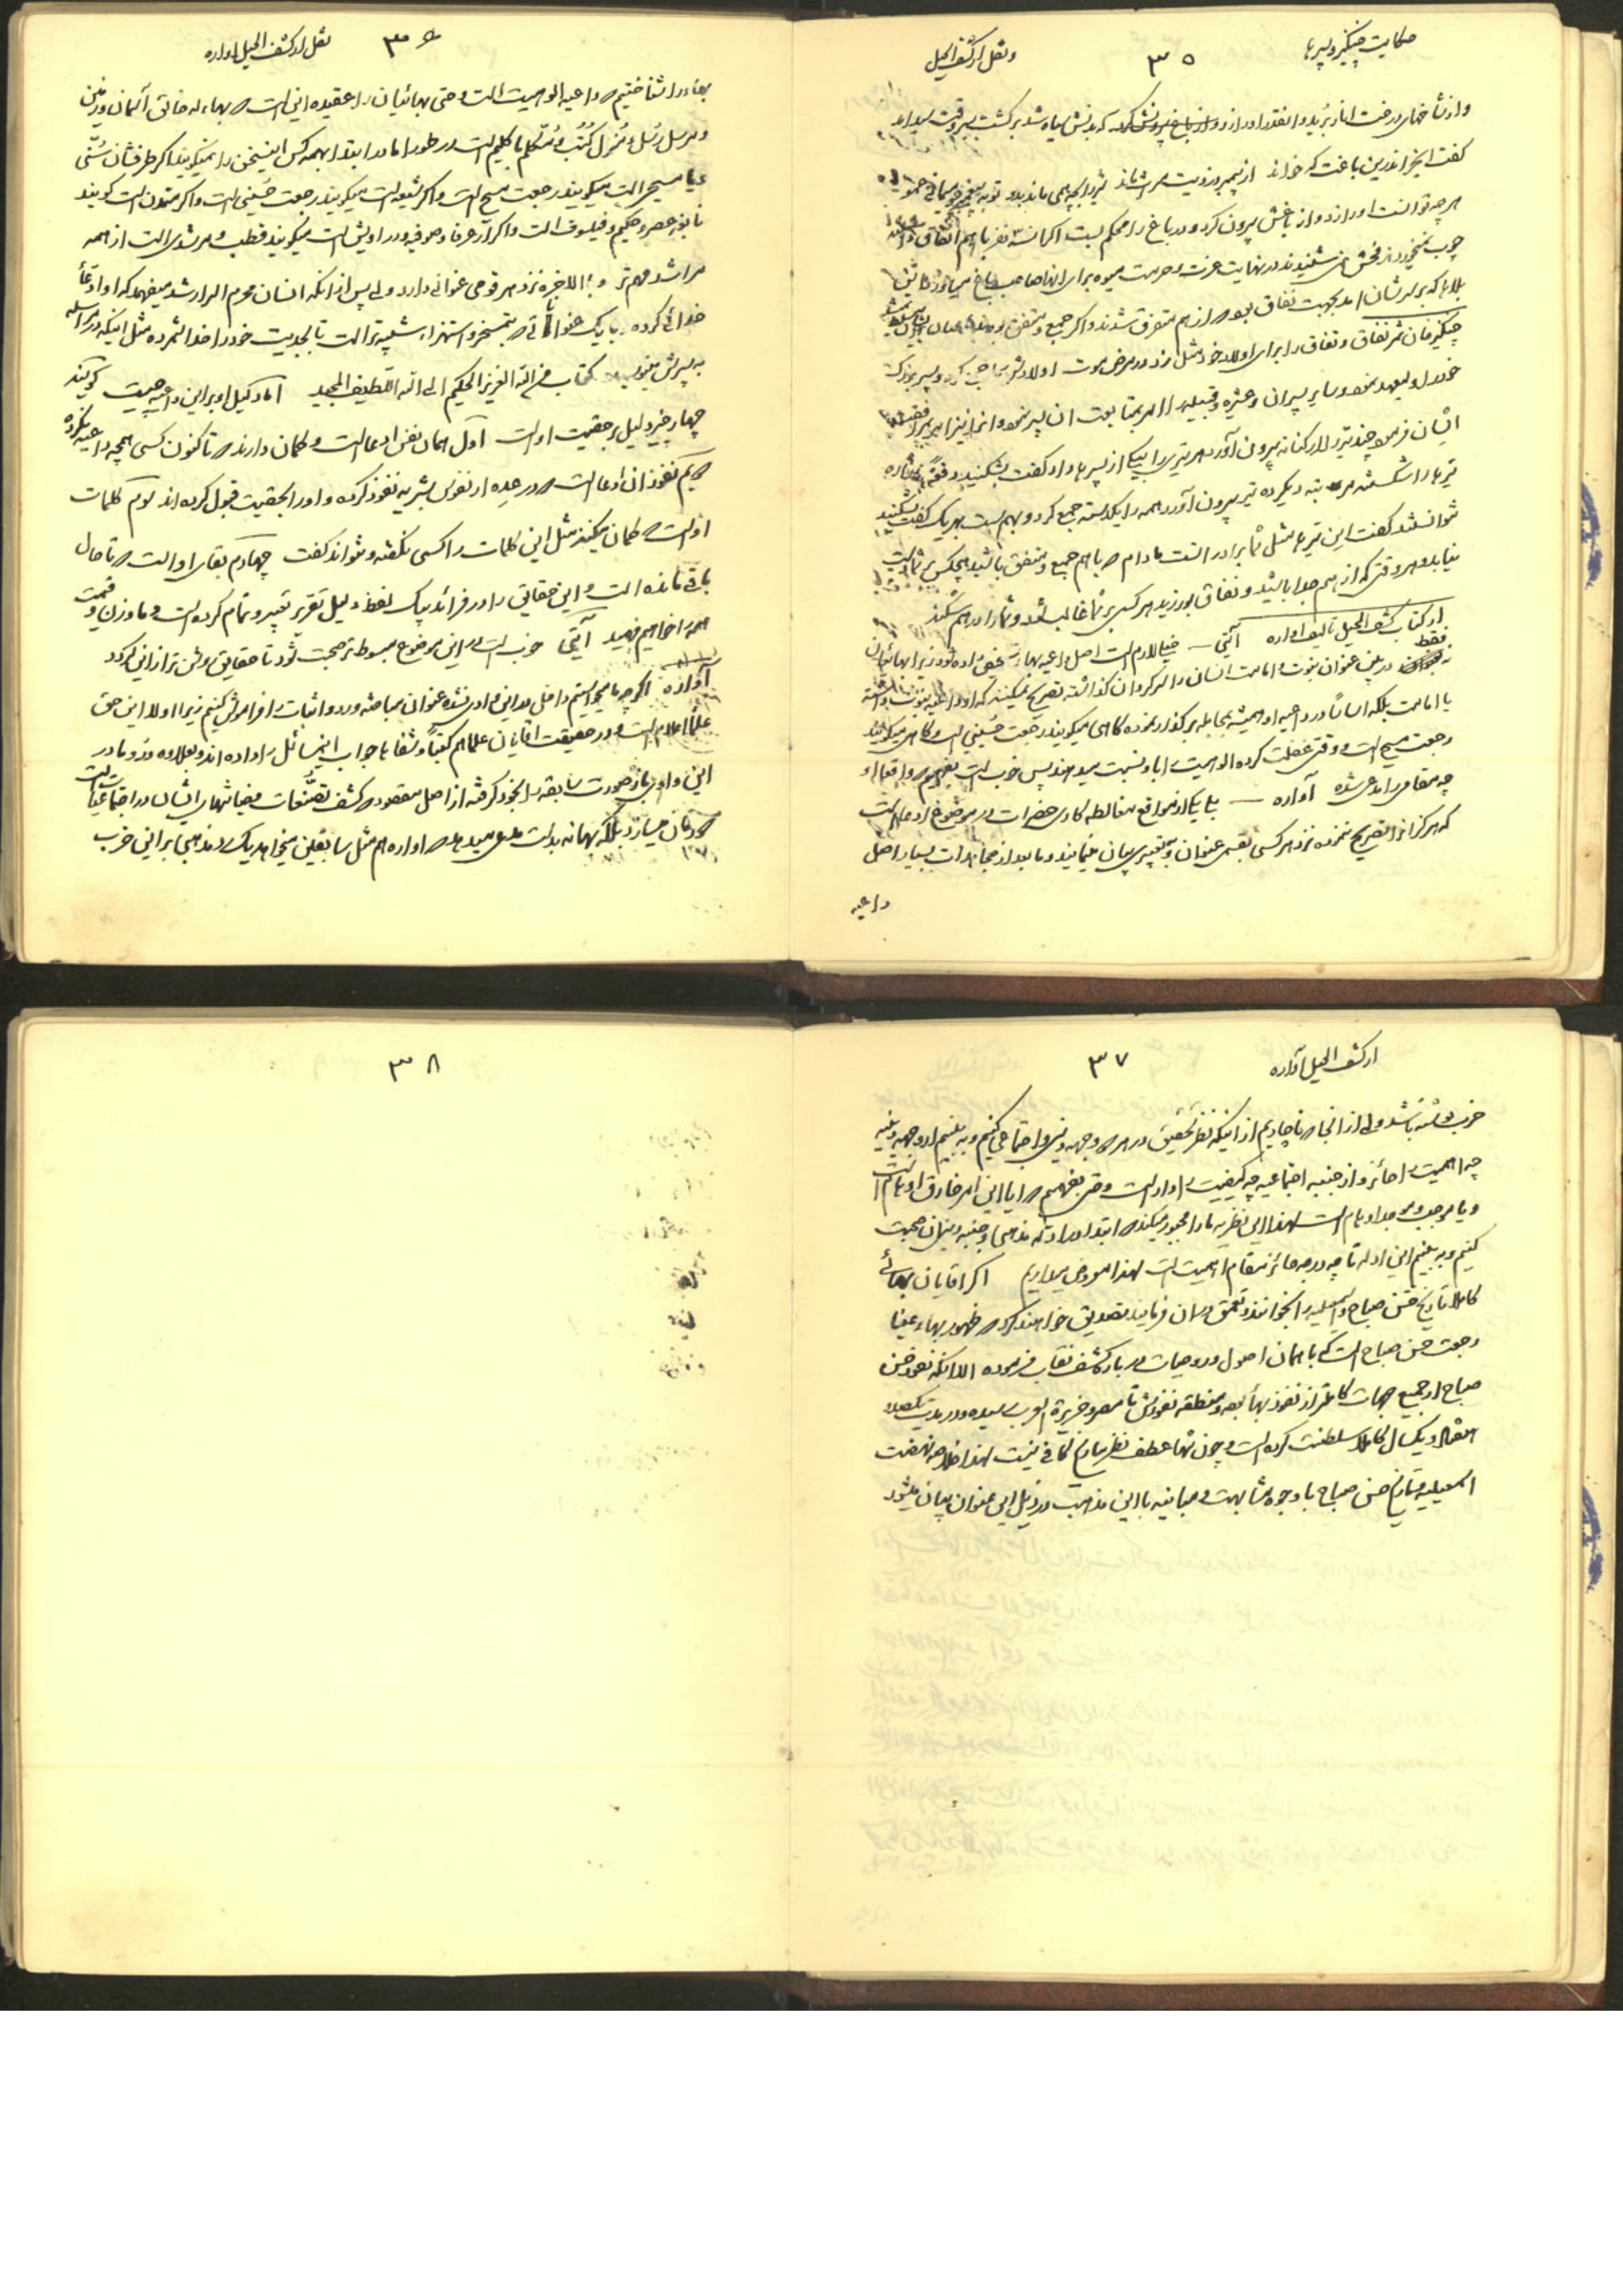 حکایت چنگیز و پسرها
۳۵
و نقل از کشف الحیل
و از شاخهای درخت انار برید و انقدر اورا زد و از باغ بیرونش کرد که بدنش سیاه شد برگشت
گفت ایخر اندرین باغت که خواند
هر چه توانست اورا زد و از باغش بیرون کرد و در باغ را محکم بست اگر انسه نفر با هم اتفاق داشتند
چوب نمیخوردند و فحش نمی شنیدند در نهایت عزت و حرمت میوه برای انها صاحب باغ
بلاها که بر سرشان امد بجهت نفاق بود و از هم متفرق شدند و اگر جمع و متفق بودند
چنگیز خان ثمر نفاق و نفاق را برای اولاد خود مثل زد در مرض موت اولادش را جمع کرده و پسر بزرگ
خود را ولیعهد نمود و سایر پسران و عشیره و قبیله را امر بمتابعت ان پسر نمود
ایشان فرمود چند تیر از کنانه بیرون آورد هر تیری را بیکی از پسرها داد گفت بشکنید
تیرها را شکستند مرتبه دیگر ده تیر بیرون آورد همه را یکدسته جمع کرد و بهم بست بهر یک گفت بشکنید
نتوانستند گفت این تیرها مثل شما برادر است مادام که با هم جمع و متفق باشید هیچکس بر شما دست
نیابد و هر وقتی که از هم جدا باشید و نفاق بورزید هر کسی بر شما غالب شود و شما را در هم شکند
از کتاب کشف الحیل تالیف اواره آیتی — خیلی لازم است اصل داعیه بهاء تشخیص داده شود زیرا بهائیان
نه فقط در بین عنوان نبوت و امامت انسان را سرگردان گذاشته تصریح نمیکنند که او داعیه نبوت داشته
یا امامت بلکه اساسا در داعیه او همیشه بمجامله برگذار نموده گاهی میگویند رجعت حسینی است و گاهی میگویند
رجعت مسیح است و وقتی غفلت کرده الوهیت را باو نسبت میدهند پس خوب است بفهمیم که واقعا او
چه مقامی را مدعی شده آواره — بلی یکی از مواقع مغالطه کاری حضرات در موضوع ادعا است
که هرگز انرا تصریح ننموده نزد هر کسی بقسمی عنوان و بتعبیری بیان مینمایند و ما بعد از مجاهدات بسیار اصل
داعیه
۳۶
نقل از کشف الحیل اواره
بهاء را شناختیم که داعیه الوهیت است و حتی بهائیان را عقیده این است که بهاءاله خالق آسمان و زمین
و مرسل رسل و منزل کتب و متکلم با کلیم است در طور اما در ابتدا بهمه کس اینسخن را نمیگویند اگر طرفشان سنی
یا مسیحی است میگویند رجعت مسیح است و اگر شیعه است میگویند رجعت حسینی است و اگر متمدن است گویند
نابغه عصر و حکیم و فیلسوف است و اگر از عرفا و صوفیه و دراویش است میگویند قطب و مرشدی است از همه
مراشد مهمتر و بالاخره نزد هر قومی عنوانی دارد ولی پس از انکه انسان محرم اسرار شد میفهمد که او ادعاء
خدائی کرده با یک عنواناتی که بتمسخر و استهزاء شبیه تر است تا بجدیت خود را خدا شمرده مثل اینکه در مراسله
به پسرش مینویسد کتاب من الله العزیز الحکیم الی الله اللطیف المجید اما دلیل او بر این داعیه چیست گویند
چهار چیز دلیل بر حقیت او است اول همان نفس ادعا است و گمان دارند که تا کنون کسی همچه داعیه نکرده
دویم نفوذ ان ادعا است که در عده از نفوس بشریه نفوذ کرده و اورا بحقیت قبول کرده اند سوم کلمات
او است که گمان میکنند مثل این کلمات را کسی نگفته و نتواند گفت چهارم بقای او است که تا حال
باقی مانده است و این حقایق را در فرائد بیک لفظ دلیل تقریر تعبیر و تمام کرده است و ما وزن و قیمت
همه را خواهیم فهمید آیتی خوب است در این موضوع مبسوط تر صحبت شود تا حقایق روشن تر از این گردد
آواره اگر چه ما میخواستیم داخل در این وادی نشده عنوان مباحثه و رد و اثبات را فراموش کنیم زیرا اولا این حق
علماء اعلام است و در حقیقت اقایان علما هم کتبا و شفاها جواب اینمسائل را داده اند و بعلاوه ورود ما در
این وادی باز صورت سابقه را بخود گرفته از اصل مقصود که کشف تصنعات و خباثتهای ایشان در اجتماعیات است
دورمان میسازد بلکه بهانه بدست مدعی میدهد که اواره هم مثل سابقین میخواهد یک رد مذهبی بر این حزب
۳۷
از کشف الحیل آواره
حزب نوشته باشد ولی از انجا که ناچاریم از اینکه نظر تحقیق در هر دو وجهه دینی و اجتماعی کنیم و به بینیم از وجهه دینیه
چه اهمیت را حائز و از جنبه اجتماعیه چه کیفیت را دارا است و حتی بفهمیم که ایا این امر خارق اوهام است
و یا موجب و موجد اوهام است لهذا این نظریه ما را مجبور میکند که ابتدا در ادله مذهبی و جنبه دینی ان صحبت
کنیم و به بینیم این ادله تا چه درجه حائز مقام اهمیت است لهذا معروض میداریم اگر اقایان بهائی
کاملا تاریخ حسن صباح و اسمعیلیه را بخوانند و تعمق در ان فرمایند تصدیق خواهند کرد که ظهور بهاء عینا
رجعت حسن صباح است که با همان اصول و روحیات در بار کشف نقاب فرموده الا انکه نفوذ حسن
صباح از جمیع جهات کاملتر از نفوذ بهاء بوده و منطقه نفوذش تا مصر و جزیرة العرب رسیده و در مدت یکصد و
هفتاد و یکسال کاملا سلطنت کرده است و چون تنها عطف نظر بتاریخ کافی نیست لهذا خلاصه نهضت
اسمعیلیه و تاریخ حسن صباح با وجوه مشابهت و مباینه با این مذهب در ذیل این عنوان بیان میشود
۳۸